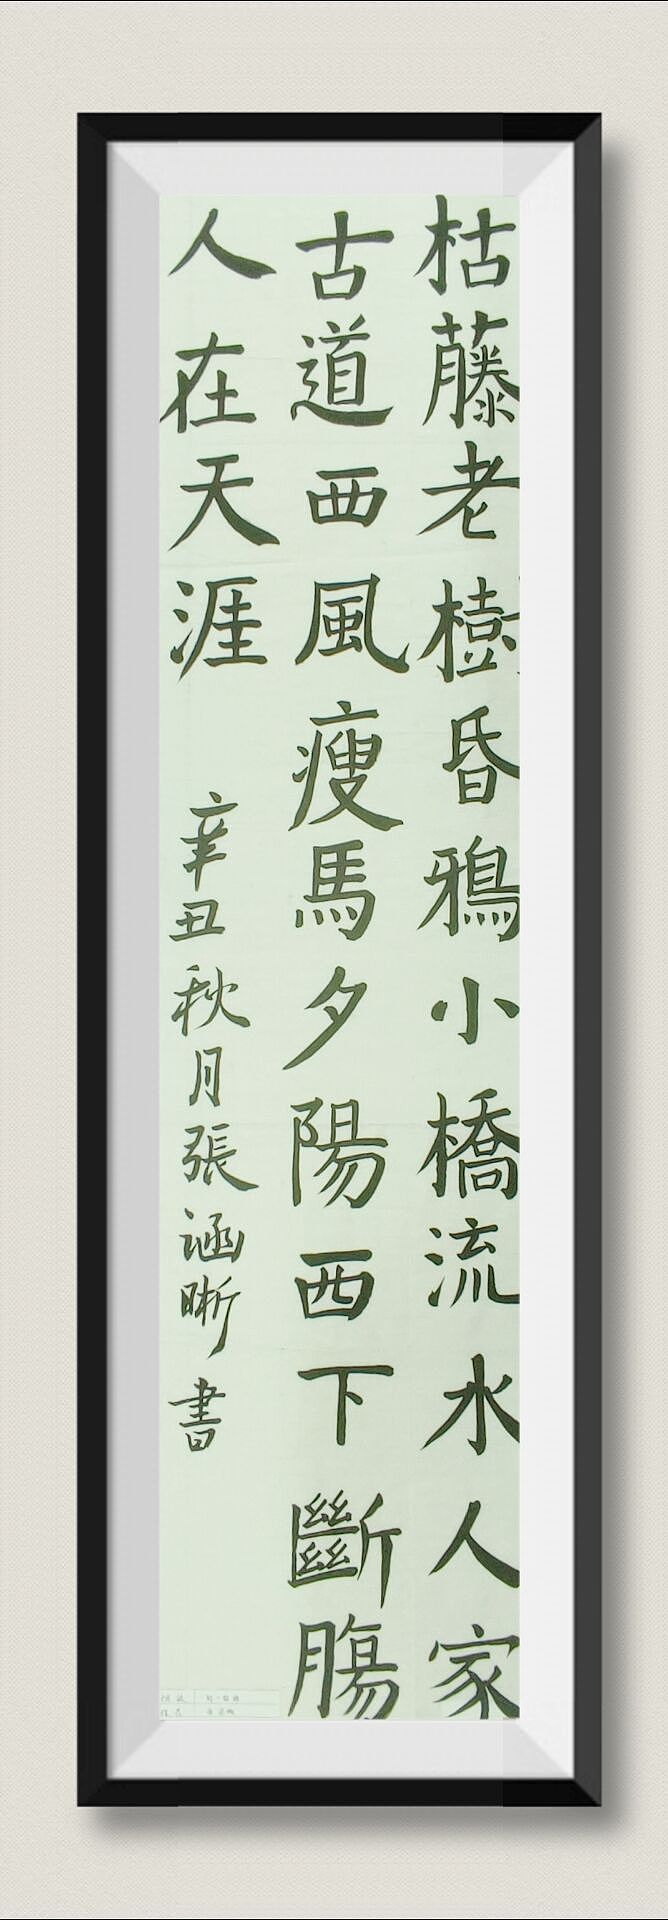 枯藤老樹昏鴉小橋流水人家
古道西風瘦馬夕陽西下斷腸
人在天涯
辛丑秋月張涵晰書